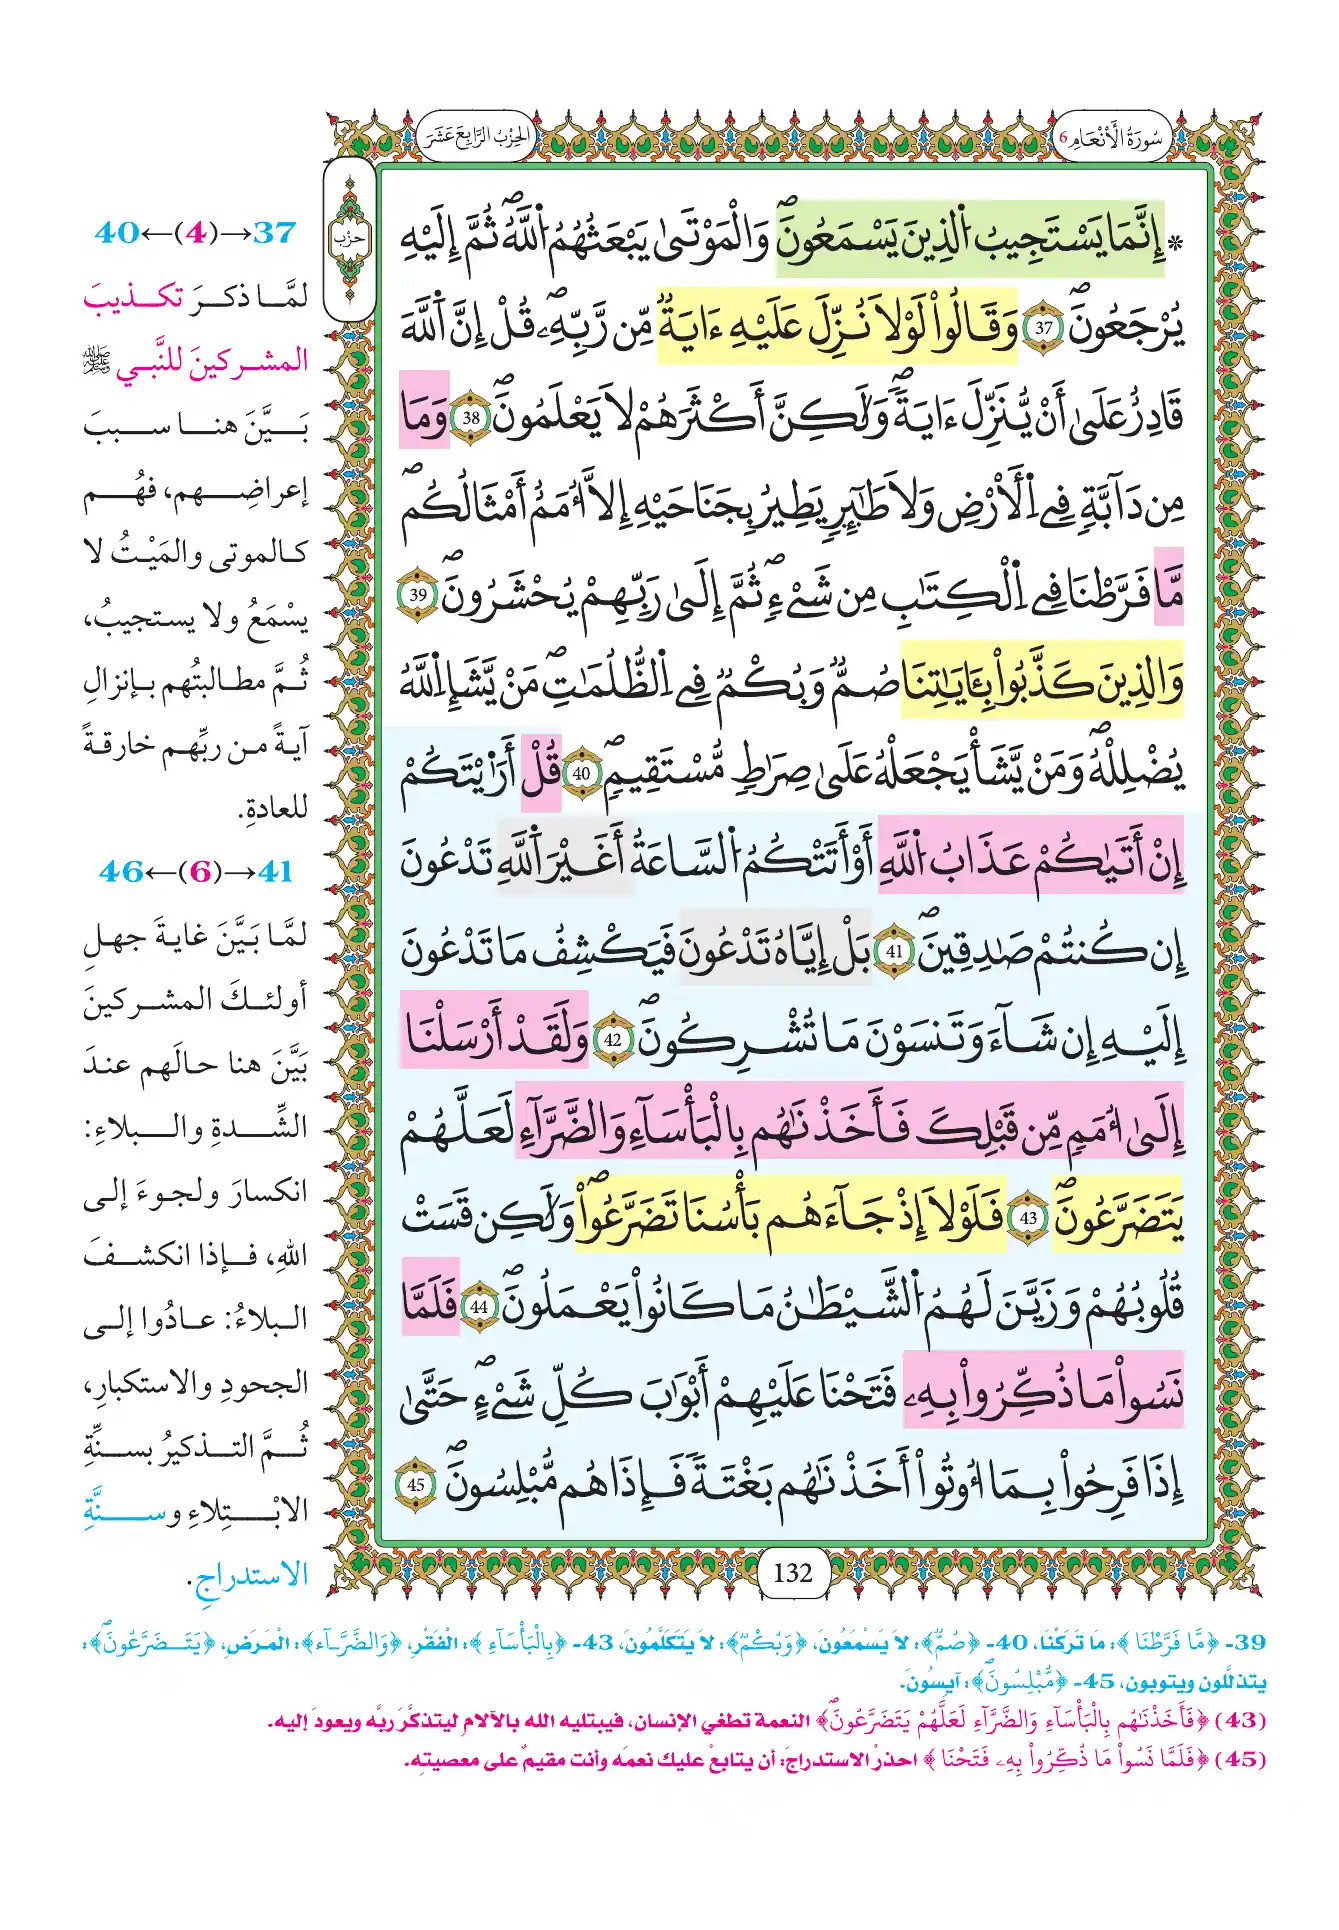 سُورَةُ الأَنْعَام 6
الحِزْبُ الرَّابِعَ عَشَرَ
حزب
* إِنَّمَا يَسْتَجِيبُ اُ۬لذِينَ يَسْمَعُونَۖ وَالْمَوْتَىٰ يَبْعَثُهُمُ اُ۬للَّهُۖ ثُمَّ إِلَيْهِ
يُرْجَعُونَۖ 37 وَقَالُواْ لَوْلَا نُزِّلَ عَلَيْهِ ءَايَةٞ مِّن رَّبِّهِۦۖ قُلْ إِنَّ اَ۬للَّهَ
قَادِرٌ عَلَىٰ أَنْ يُّنَزِّلَ ءَايَةٗۖ وَلَٰكِنَّ أَكْثَرَهُمْ لَا يَعْلَمُونَۖ 38 وَمَا
مِن دَآبَّةٖ فِے اِ۬لْأَرْضِ وَلَا طَٰٓئِرٖ يَطِيرُ بِجَنَاحَيْهِ إِلَّا أُمَمٌ أَمْثَالُكُمۖ
مَّا فَرَّطْنَا فِے اِ۬لْكِتَٰبِ مِن شَےْءٖۖ ثُمَّ إِلَىٰ رَبِّهِمْ يُحْشَرُونَۖ 39
وَالذِينَ كَذَّبُواْ بِـَٔايَٰتِنَا صُمّٞ وَبُكْمٞ فِے اِ۬لظُّلُمَٰتِۖ مَنْ يَّشَإِ اِ۬للَّهُ
يُضْلِلْهُۖ وَمَنْ يَّشَأْ يَجْعَلْهُ عَلَىٰ صِرَٰطٖ مُّسْتَقِيمٖۖ 40 قُلْ أَرَٰٓيْتَكُمْ
إِنْ أَتَيٰكُمْ عَذَابُ اُ۬للَّهِ أَوْ أَتَتْكُمُ اُ۬لسَّاعَةُ أَغَيْرَ اَ۬للَّهِ تَدْعُونَ
إِن كُنتُمْ صَٰدِقِينَۖ 41 بَلْ إِيَّاهُ تَدْعُونَ فَيَكْشِفُ مَا تَدْعُونَ
إِلَيْهِ إِن شَآءَ وَتَنسَوْنَ مَا تُشْرِكُونَۖ 42 وَلَقَدْ أَرْسَلْنَا
إِلَىٰ أُمَمٖ مِّن قَبْلِكَ فَأَخَذْنَٰهُم بِالْبَأْسَآءِ وَالضَّرَّآءِ لَعَلَّهُمْ
يَتَضَرَّعُونَۖ 43 فَلَوْلَا إِذْ جَآءَهُم بَأْسُنَا تَضَرَّعُواْۖ وَلَٰكِن قَسَتْ
قُلُوبُهُمْ وَزَيَّنَ لَهُمُ اُ۬لشَّيْطَٰنُ مَا كَانُواْ يَعْمَلُونَۖ 44 فَلَمَّا
نَسُواْ مَا ذُكِّرُواْ بِهِۦ فَتَحْنَا عَلَيْهِمْ أَبْوَٰبَ كُلِّ شَےْءٍۖ حَتَّىٰ
إِذَا فَرِحُواْ بِمَا أُوتُواْ أَخَذْنَٰهُم بَغْتَةٗ فَإِذَا هُم مُّبْلِسُونَۖ 45
132
37→(4)←40
لمَّا ذكرَ تكذيبَ
المشركينَ للنَّبي ﷺ
بَيَّنَ هنا سببَ
إعراضِهم، فهُم
كالموتى والمَيْتُ لا
يسْمَعُ ولا يستجيبُ،
ثُمَّ مطالبتُهم بإنزالِ
آيةً من ربِّهم خارقةً
للعادةِ.
41→(6)←46
لمَّا بَيَّنَ غايةَ جهلِ
أولئكَ المشركينَ
بَيَّنَ هنا حالَهم عندَ
الشِّدةِ والبلاءِ:
انكسارَ ولجوءَ إلى
اللهِ، فإذا انكشفَ
البلاءُ: عادُوا إلى
الجحودِ والاستكبارِ،
ثُمَّ التذكيرُ بسنَّةِ
الابْتِلاءِ وسنَّةِ
الاستدراجِ.
39- ﴿مَّا فَرَّطْنَا﴾: مَا تَرَكْنَا، 40- ﴿صُمّٞ﴾: لا يَسْمَعُونَ، ﴿وَبُكْمٞ﴾: لا يَتَكَلَّمُونَ، 43- ﴿بِالْبَأْسَآءِ﴾: الْفَقْرِ، ﴿وَالضَّرَّآء﴾: الْمَرَضِ، ﴿يَتَضَرَّعُونَۖ﴾:
يتذللَّون ويتوبون، 45- ﴿مُّبْلِسُونَۖ﴾: آيِسُونَ.
(43) ﴿فَأَخَذْنَٰهُم بِالْبَأْسَآءِ وَالضَّرَّآءِ لَعَلَّهُمْ يَتَضَرَّعُونَۖ﴾ النعمة تطغي الإنسان، فيبتليه الله بالآلام ليتذكَّرَ ربَّه ويعودَ إليه.
(45) ﴿فَلَمَّا نَسُواْ مَا ذُكِّرُواْ بِهِۦ فَتَحْنَا﴾ احذرْ الاستدراجَ: أن يتابعَ عليك نعمَه وأنت مقيمٌ على معصيتِه.